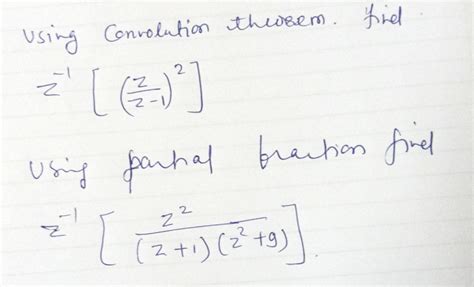 Using Convolution theorem. find
z⁻¹ [ (z/(z-1))² ]
Using partial fraction find
z⁻¹ [ z²/((z+1)(z²+9)) ].